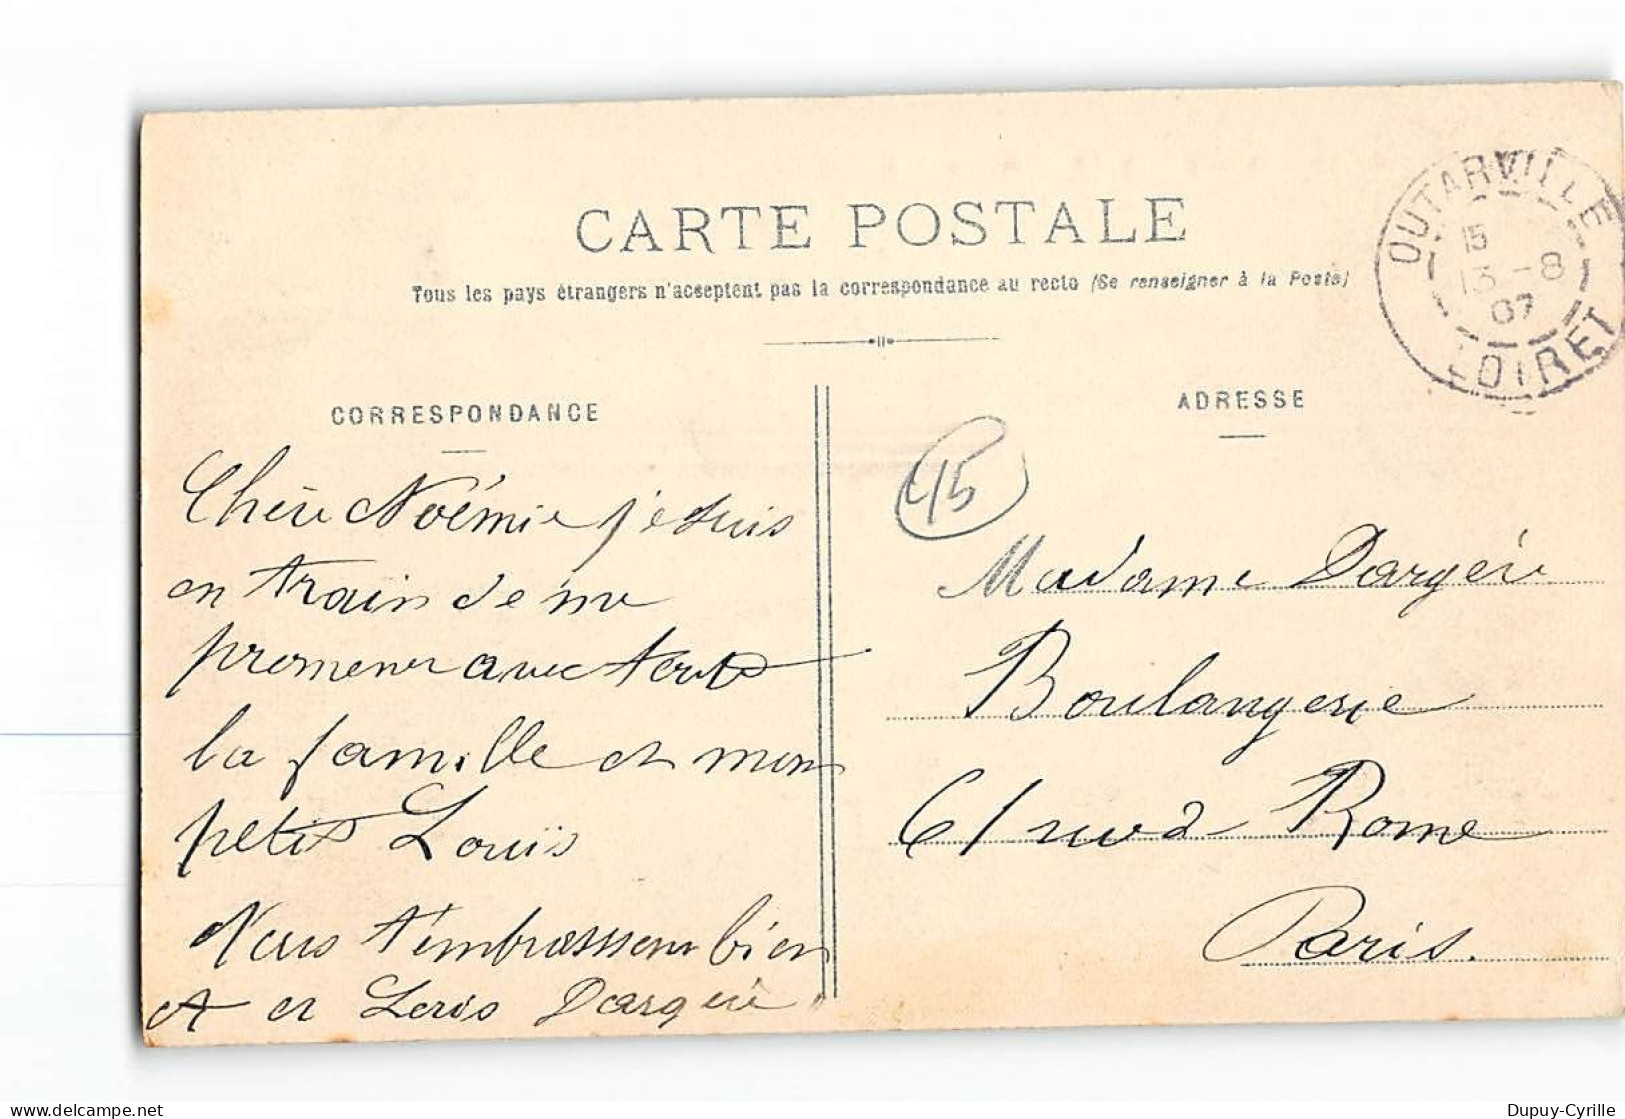 CARTE POSTALE
Tous les pays étrangers n'acceptent pas la correspondance au recto (Se renseigner à la Poste)
OUTARVILLE
15
13 - 8
07
LOIRET
CORRESPONDANCE
Chère Noémie je suis
en train de me
promener avec toute
la famille et mon
petit Louis
Nous t'embrassons bien
A et Louis Dargère
ADRESSE
45
Madame Dargère
Boulangerie
61 rue de Rome
Paris.
Dupuy-Cyrille
delcampe.net